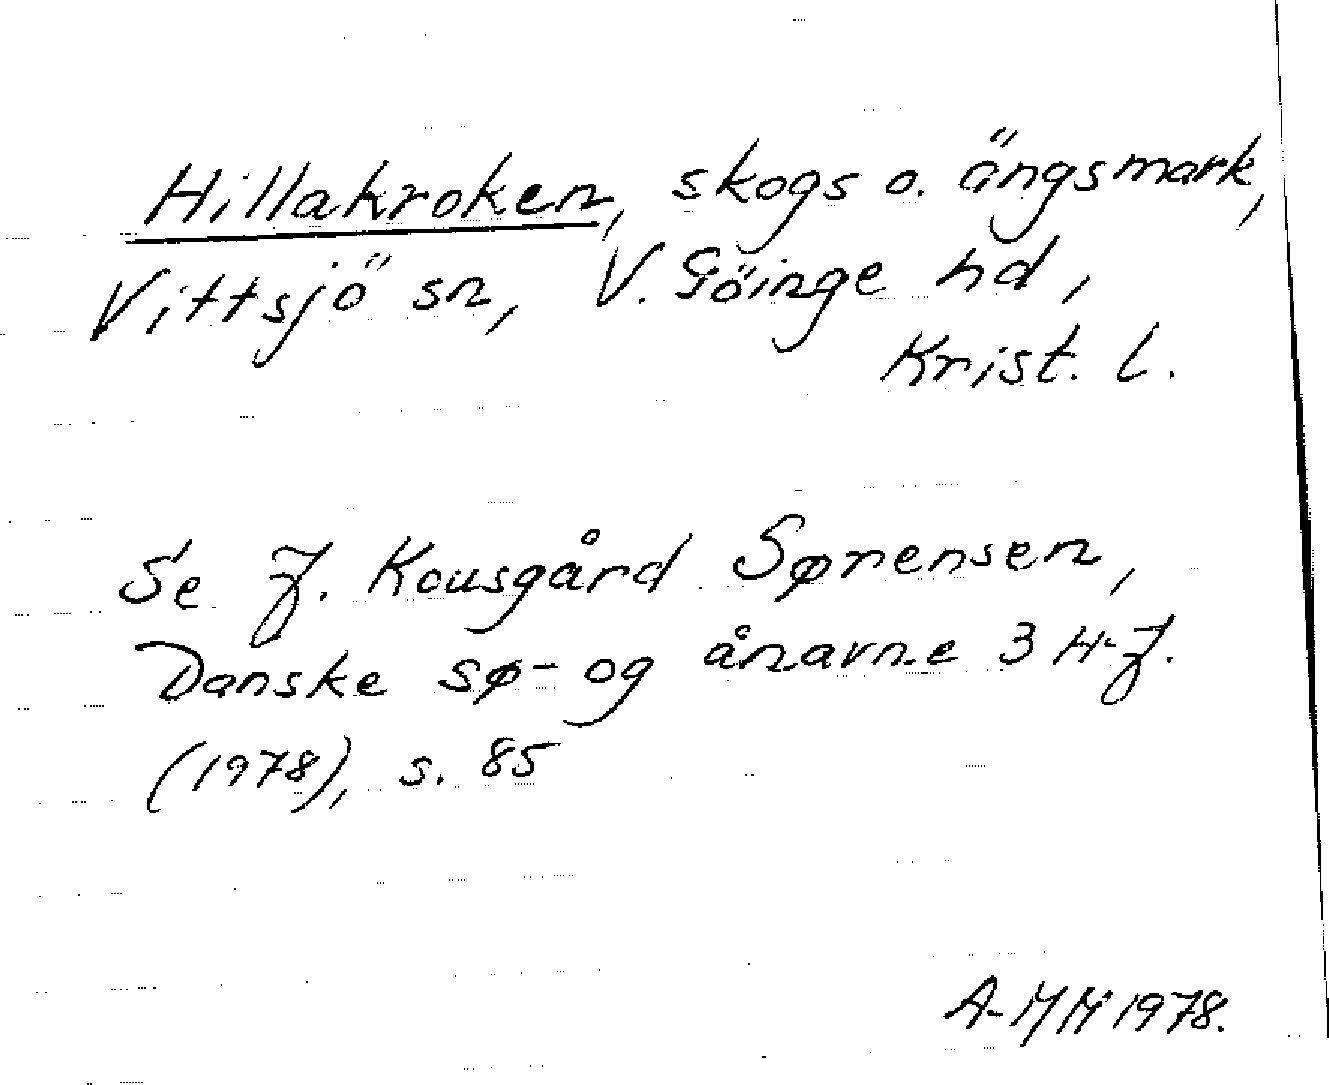 Hillakroken, skogs o. ängsmark,
Vittsjö sn, V. Göinge hd,
Krist. l.
Se J. Kousgård Sørensen,
Danske sø- og ånavne 3 H-J.
(1978), s. 85
A-MM 1978.